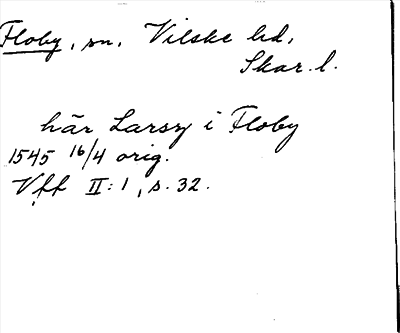 Floby, sn, Vilske hd,
Skar. l.
här Larss i Floby
1545 16/4 orig.
Vff II: 1, s. 32.